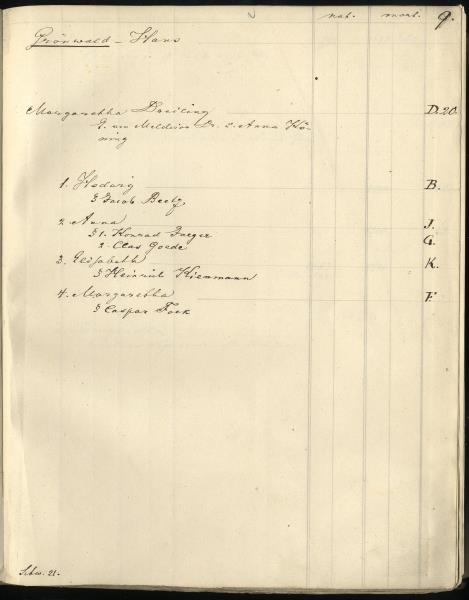 nat. mort. 9.
Grönwald - Hans
Margaretha Dreiling D. 20.
Melchior Dr. 2. Anna Kö-
ning
1. Hedwig B.
§ Jacob Beck
2. Anna J.
§ 1. Konrad Jaeger
2. Clas Goede G.
3. Elisabeth K.
§ Heinrich Kienmann
4. Margaretha F.
§ Caspar Fock
Schw. 21.